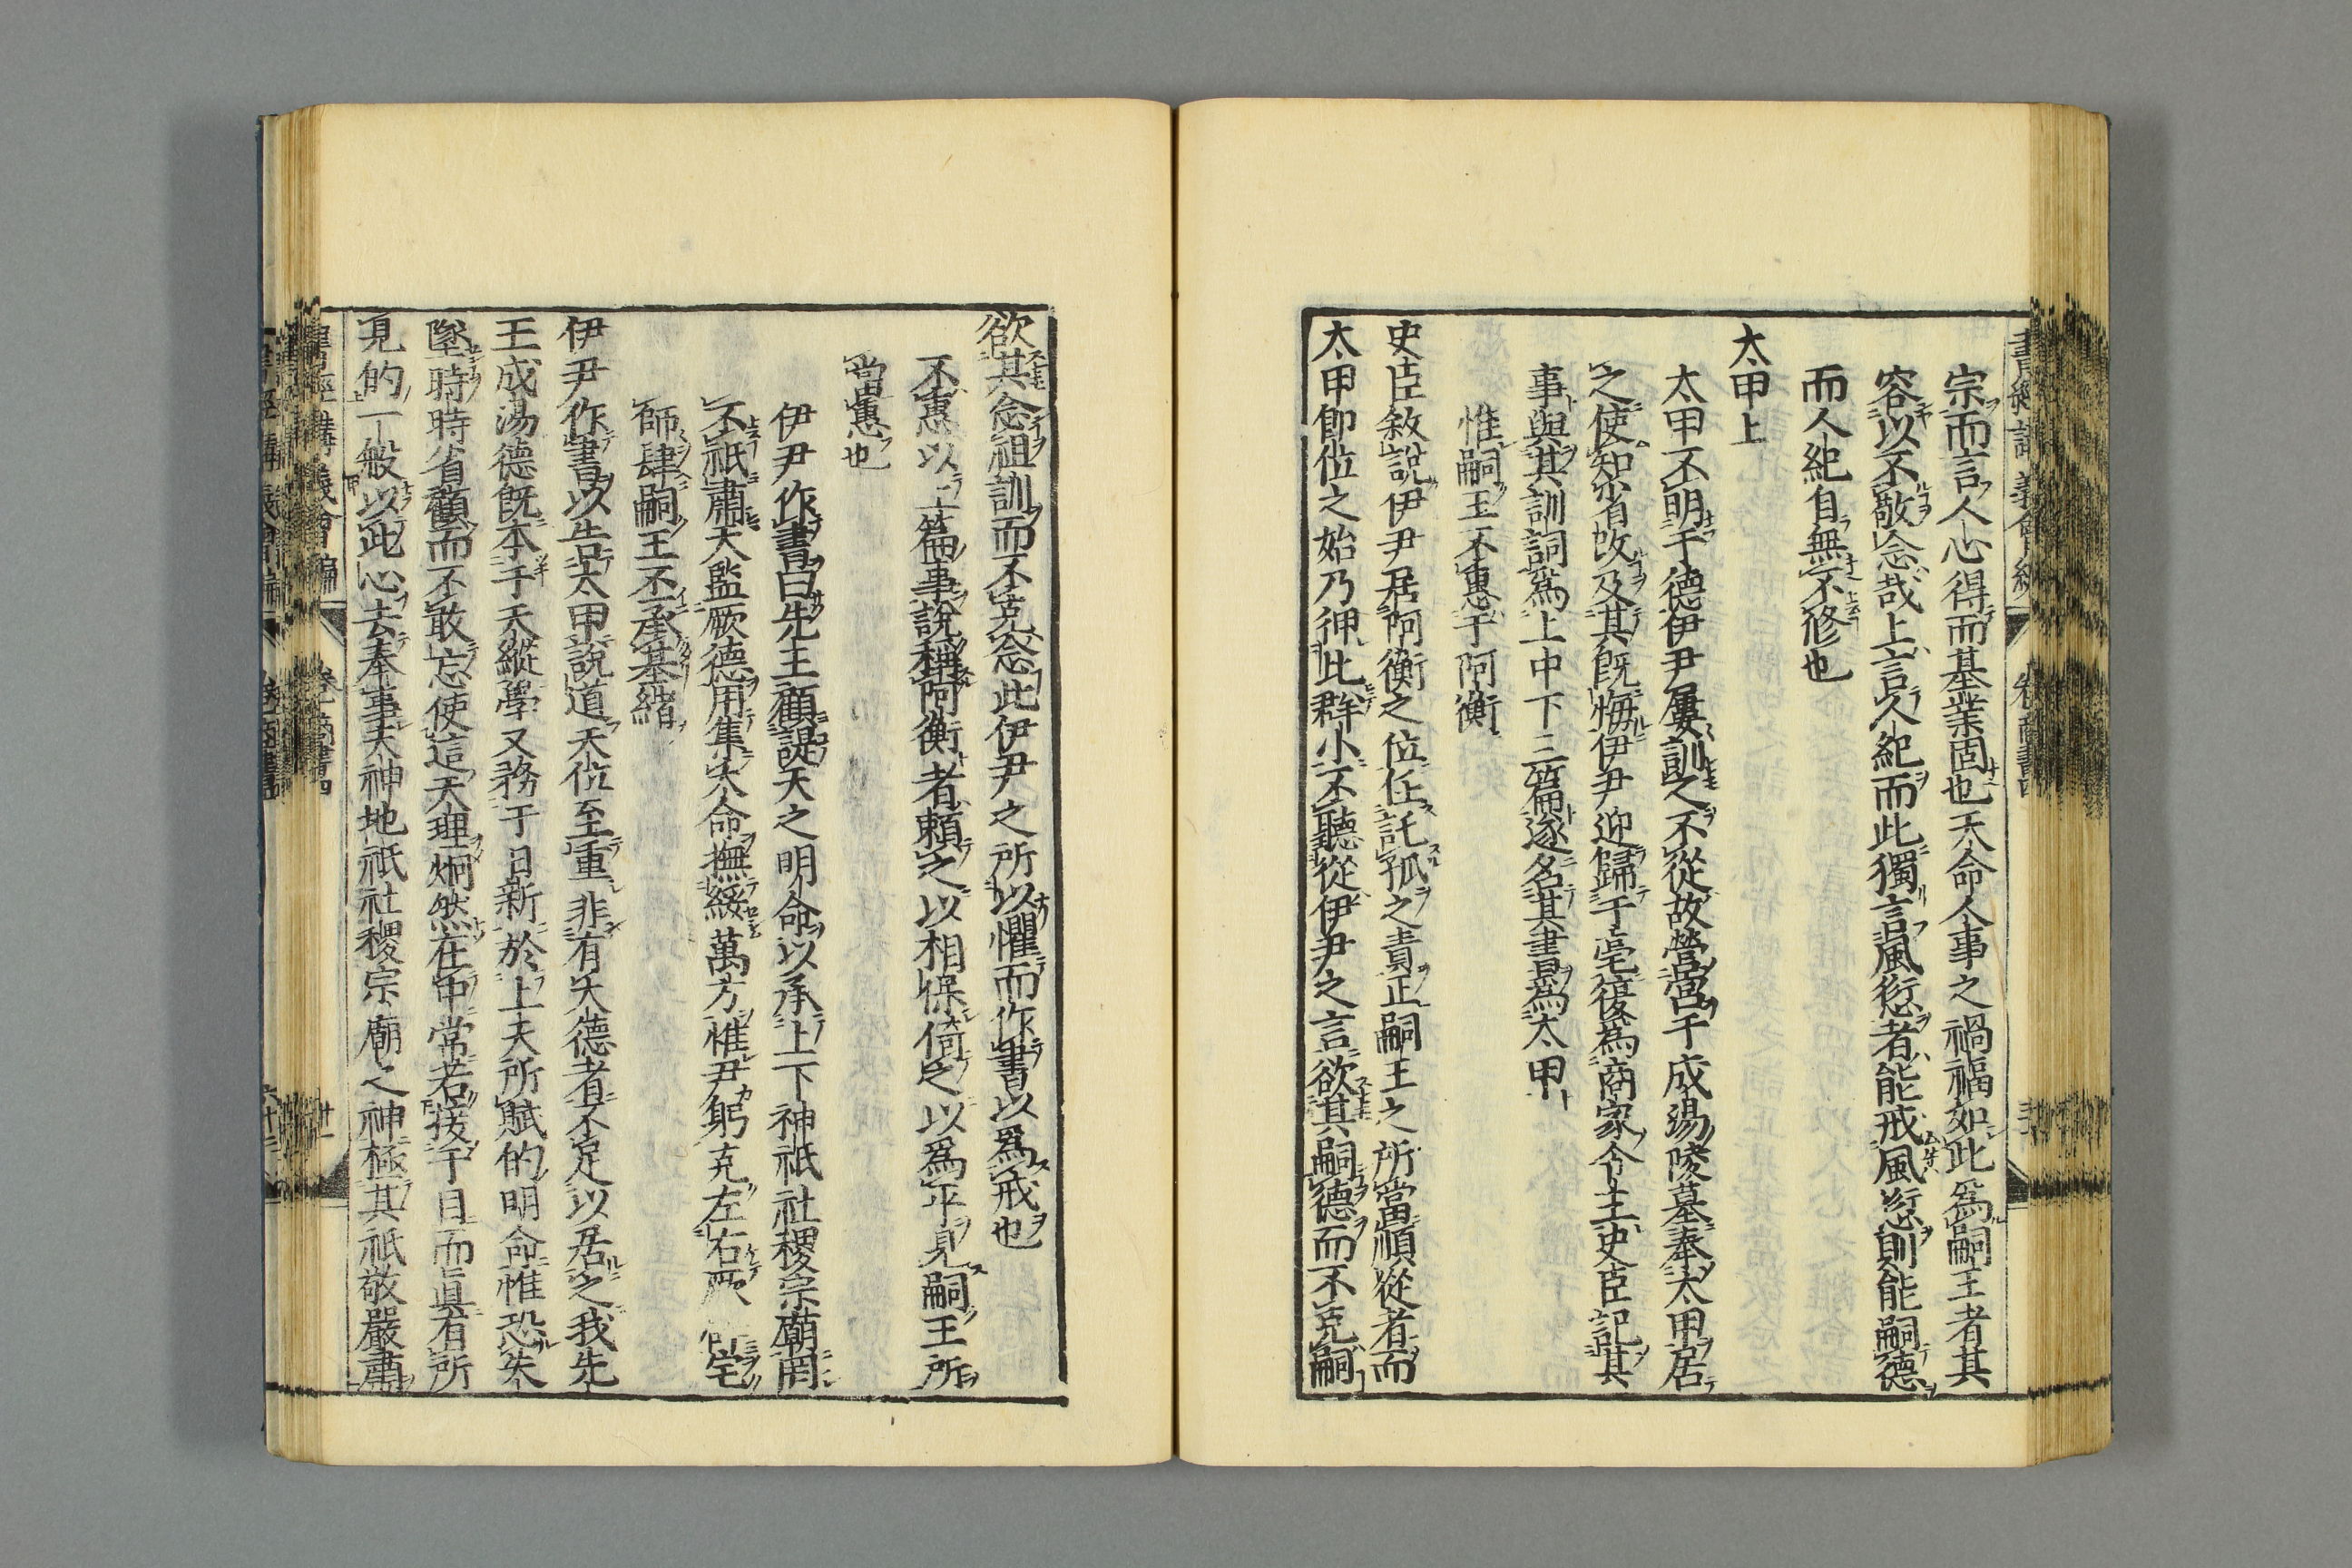 宗而言人心得而基業固也天命人事之禍福如此為嗣王者其
容以不敬念哉上言人紀而此獨言風愆者能戒風愆則能嗣德
而人紀自無不修也
太甲上
太甲不明于德伊尹屢訓之不從故營宮于成湯陵墓奉太甲居
之使知省改及其既悔伊尹迎歸于亳後為商家令主史臣記其
事與其訓詞爲上中下三篇遂名其書爲太甲
惟嗣王不惠于阿衡
史臣敘說伊尹居阿衡之位任託孤之責正嗣王之所當順從者而
太甲即位之始乃狎比群小不聽從伊尹之言欲其嗣德而不克嗣
欲其念祖訓而不克念此伊尹之所以懼而作書以爲戒也
不惠以上篇事說稱阿衡者賴之以相保倚之以爲平見嗣王所
當惠也
伊尹作書曰先王顧諟天之明命以承上下神祇社稷宗廟罔
不祇肅天監厥德用集大命撫綏萬方惟尹躬克左右厥宅
師肆嗣王丕承基緒
伊尹作書以告太甲說道天位至重非有大德者不足以居之我先
王成湯德既本于天縱學又務于日新於上天所賦的明命惟恐失
墜時時省顧而不敢忘使這天理炯然在中常若接于目而真有所
見的一般以此心去奉事天神地祇社稷宗廟之神極其祇敬嚴肅
書經講義會編
卷
商書四
廿一